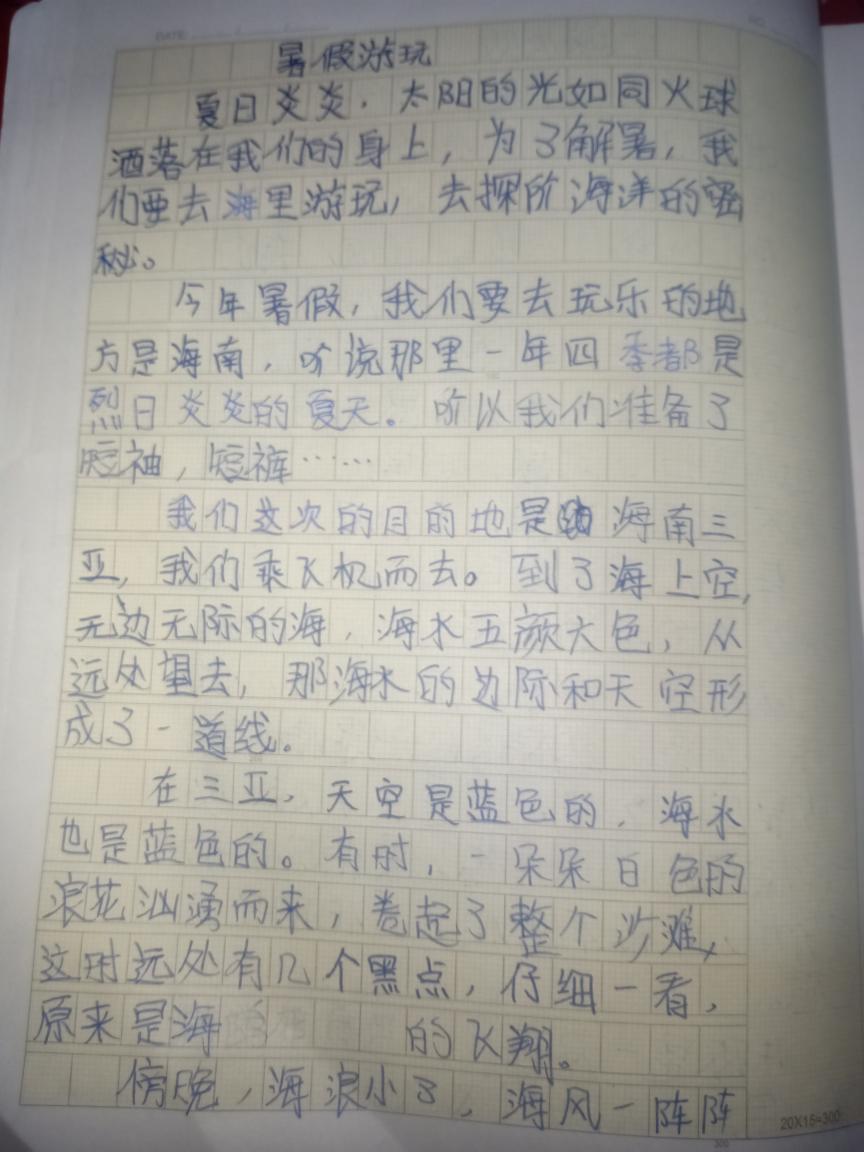 DATE
NO
暑假游玩
夏日炎炎，太阳的光如同火球
洒落在我们的身上，为了解暑，我
们要去海里游玩，去探阶海洋的密
秘。
今年暑假，我们要去玩乐的地
方是海南，听说那里一年四季都是
烈日炎炎的夏天。所以我们准备了
短袖，短裤……
我们这次的目的地是海南三
亚，我们乘飞机而去。到了海上空，
无边无际的海，海水五颜六色，从
远处望去，那海水的边际和天空形
成了一道线。
在三亚，天空是蓝色的，海水
也是蓝色的。有时，一朵朵白色的
浪花汹涌而来，卷起了整个沙滩，
这时远处有几个黑点，仔细一看，
原来是海 的飞翔。
傍晚，海浪小了，海风一阵阵
20X15=300
300